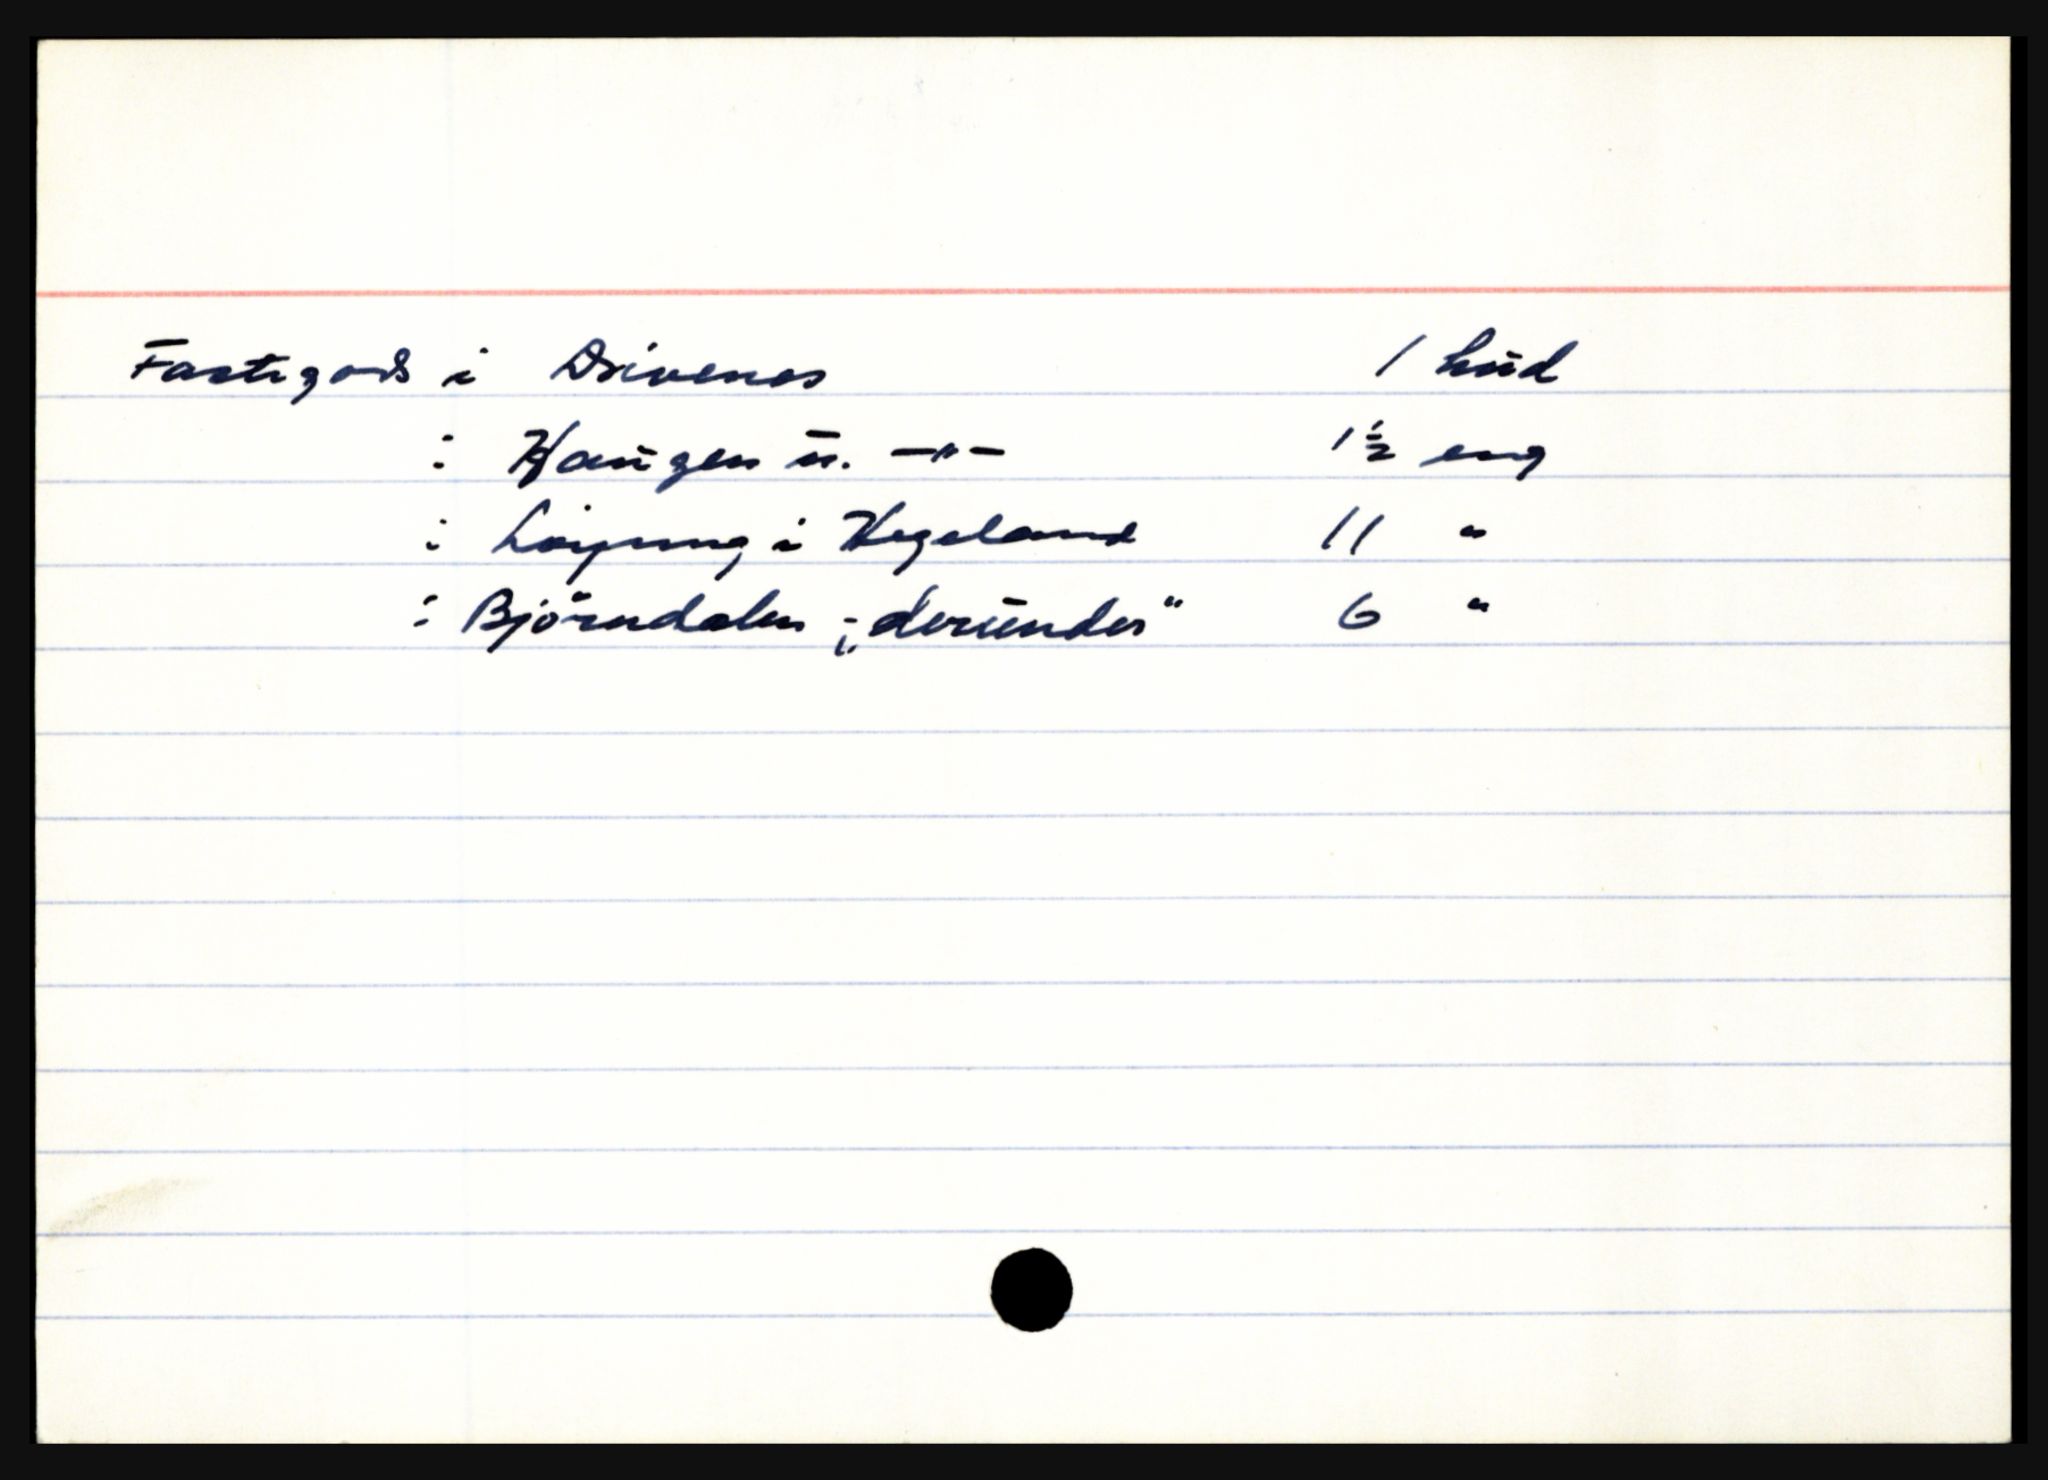 Fastigods i Drivenes 1 hud
: Haugen u. —"— 1½ eng
: Løypning i Hegeland 11 "
: Björndalen ; „derunder" 6 "